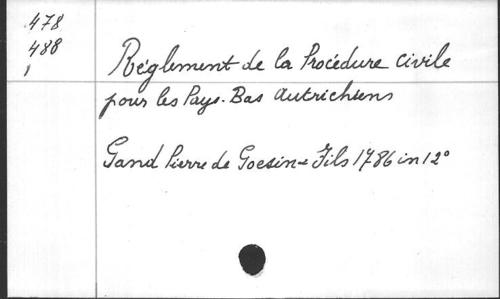 478
488
1
Réglement de la Procédure civile
pour les Pays-Bas Autrichiens
Gand Pierre de Goesin = Fils 1786 in 12°